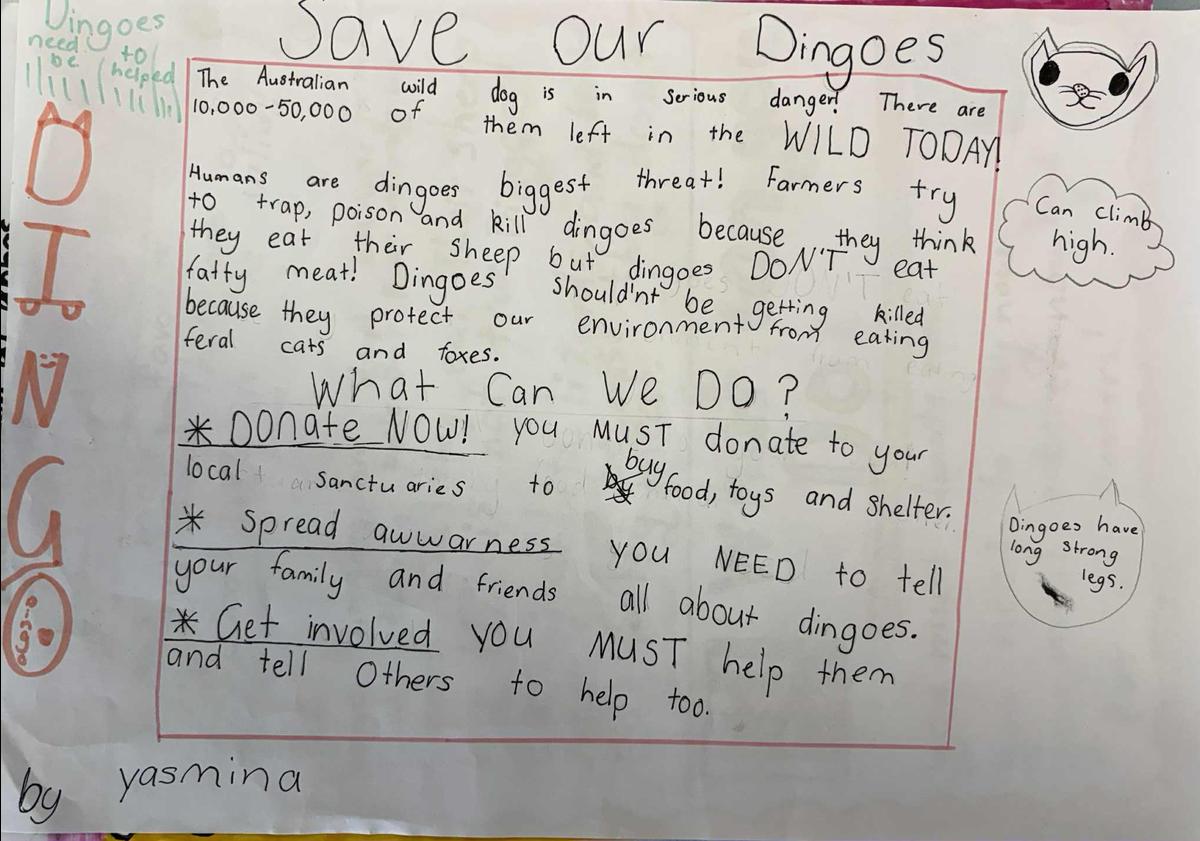 Save Our Dingoes
Dingoes
need to
be helped
DINGO
The Australian wild dog is in serious danger! There are
10,000-50,000 of them left in the WILD TODAY!
Humans are dingoes biggest threat! Farmers try
to trap, poison and kill dingoes because they think
they eat their sheep but dingoes DON'T eat
fatty meat! Dingoes should'nt be getting killed
because they protect our environment from eating
feral cats and foxes.
What Can We DO?
* Donate NOW! you MUST donate to your
local sanctuaries to buy food, toys and shelter.
* Spread awwarness you NEED to tell
your family and friends all about dingoes.
* Get involved you MUST help them
and tell others to help too.
Can climb
high.
Dingoes have
long strong
legs.
by yasmina